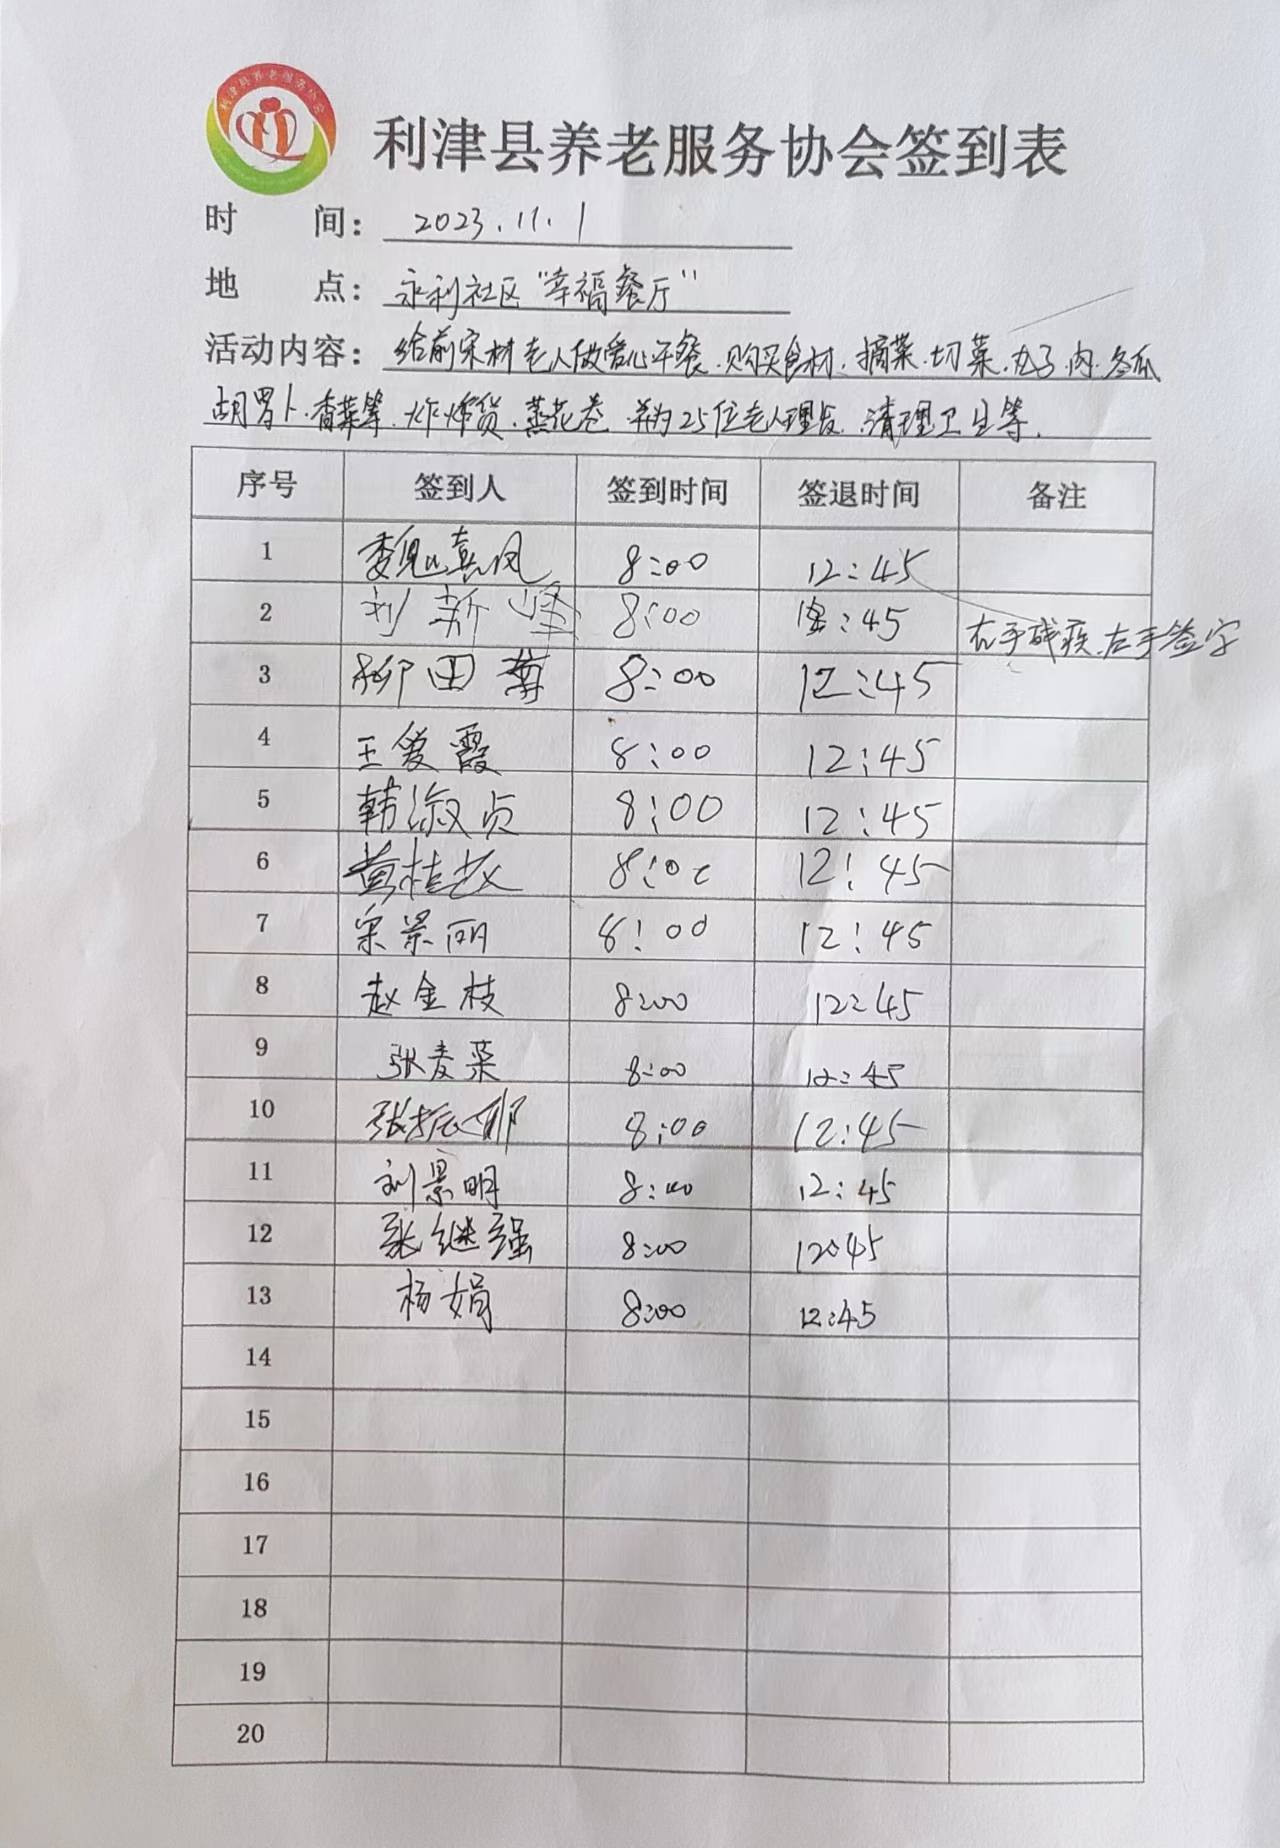 利津县养老服务协会
利津县养老服务协会签到表
时 间: 2023.11.1
地 点: 永利社区“幸福餐厅”
活动内容: 给前宋村老人做爱心午餐.购买食材.摘菜.切菜.丸子.肉.冬瓜
胡罗卜.香菜等.炸烀货.蒸花卷 并为25位老人理发.清理卫生等.
序号 签到人 签到时间 签退时间 备注
1 魏喜凤 8:00 12:45
2 刘新峰 8:00 12:45 右手残疾.左手签字
3 柳田尊 8:00 12:45
4 王爱霞 8:00 12:45
5 韩淑贞 8:00 12:45
6 黄桂 8:00 12:45
7 宋景丽 8:00 12:45
8 赵金枝 8:00 12:45
9 张麦菜 8:00 12:45
10 张振 8:00 12:45
11 刘景明 8:00 12:45
12 张继强 8:00 12:45
13 杨娟 8:00 12:45
14
15
16
17
18
19
20